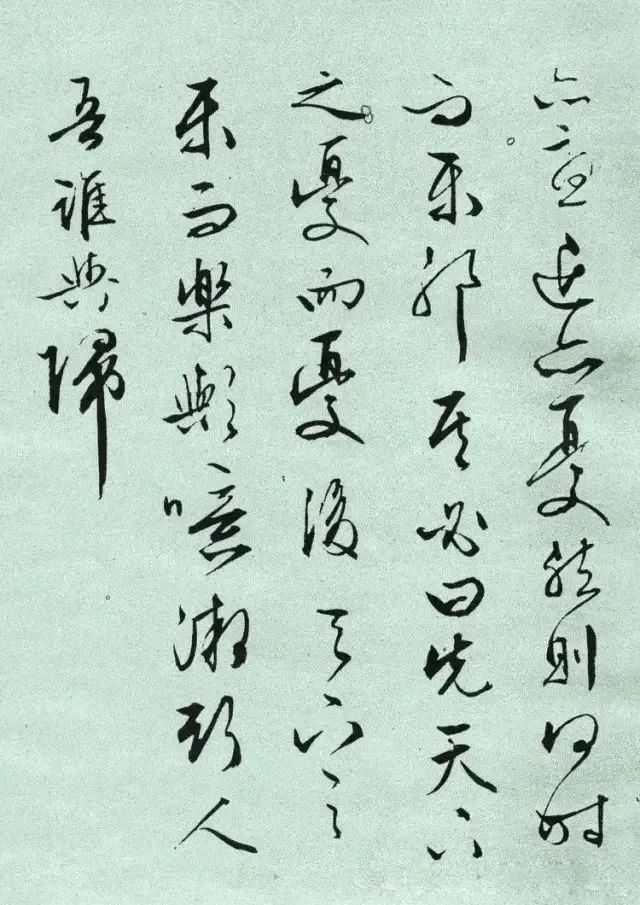 亦憂退亦憂然則何時
而樂耶其必曰先天下
之憂而憂後天下之
樂而樂歟噫微斯人
吾誰與歸